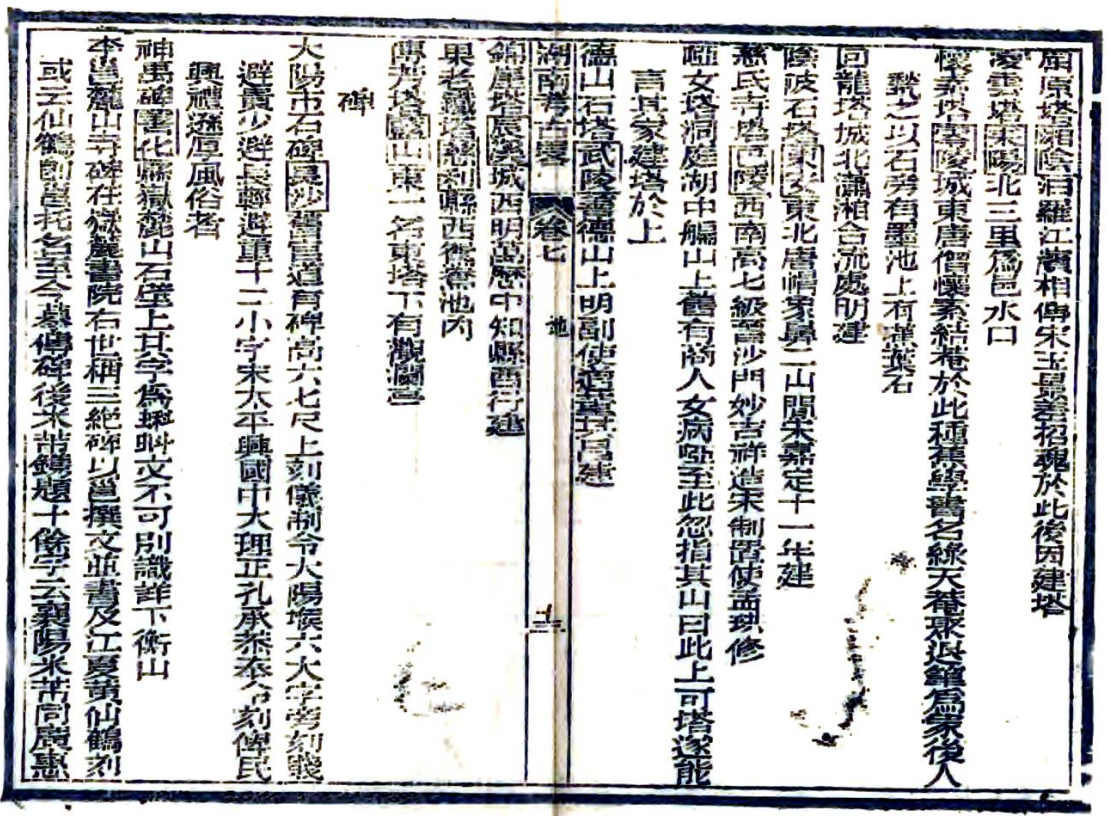 屈原塔湘陰汨羅江濱相傳宋玉景差招魂於此後因建塔
凌雲塔耒陽北三里爲邑水口
懷素塔零陵城東唐僧懷素結菴於此種蕉學書名綠天菴聚退筆爲冢後人
甃之以石旁有墨池上有蕉葉石
回龍塔城北瀟湘合流處明建
陰陂石塔東安東北唐帽象鼻二山間宋嘉定十一年建
慈氏寺塔巴陵西南高七級晉沙門妙吉祥造宋制置使孟珙修
啞女塔洞庭湖中艑山上舊有商人女病啞至此忽指其山曰此上可塔遂能
言其家建塔於上
德山石塔武陵善德山上明副使建
湖南考古略 卷七 地
錦屏塔辰谿城西明萬歷中知縣建
果老鐵塔慈利縣西池內
塔山東一名東塔下有觀瀾亭
碑
大陽市石碑長沙舊官道有碑高六七尺上刻儀制令大陽堠六大字旁刻賤
避貴少避長輕避重十二小字宋太平興國中大理正孔承恭奏令刻俾民
興禮遜厚風俗者
神禹碑善化嶽麓山石壁上其字爲蝌蚪文不可別識詳下衡山
李邕麓山寺碑在嶽麓書院右世稱三絕碑以邕撰文並書及江夏黃仙鶴刻
或云仙鶴卽邕托名至今摹傳碑後米芾鐫題十餘字云襄陽米芾同廣惠